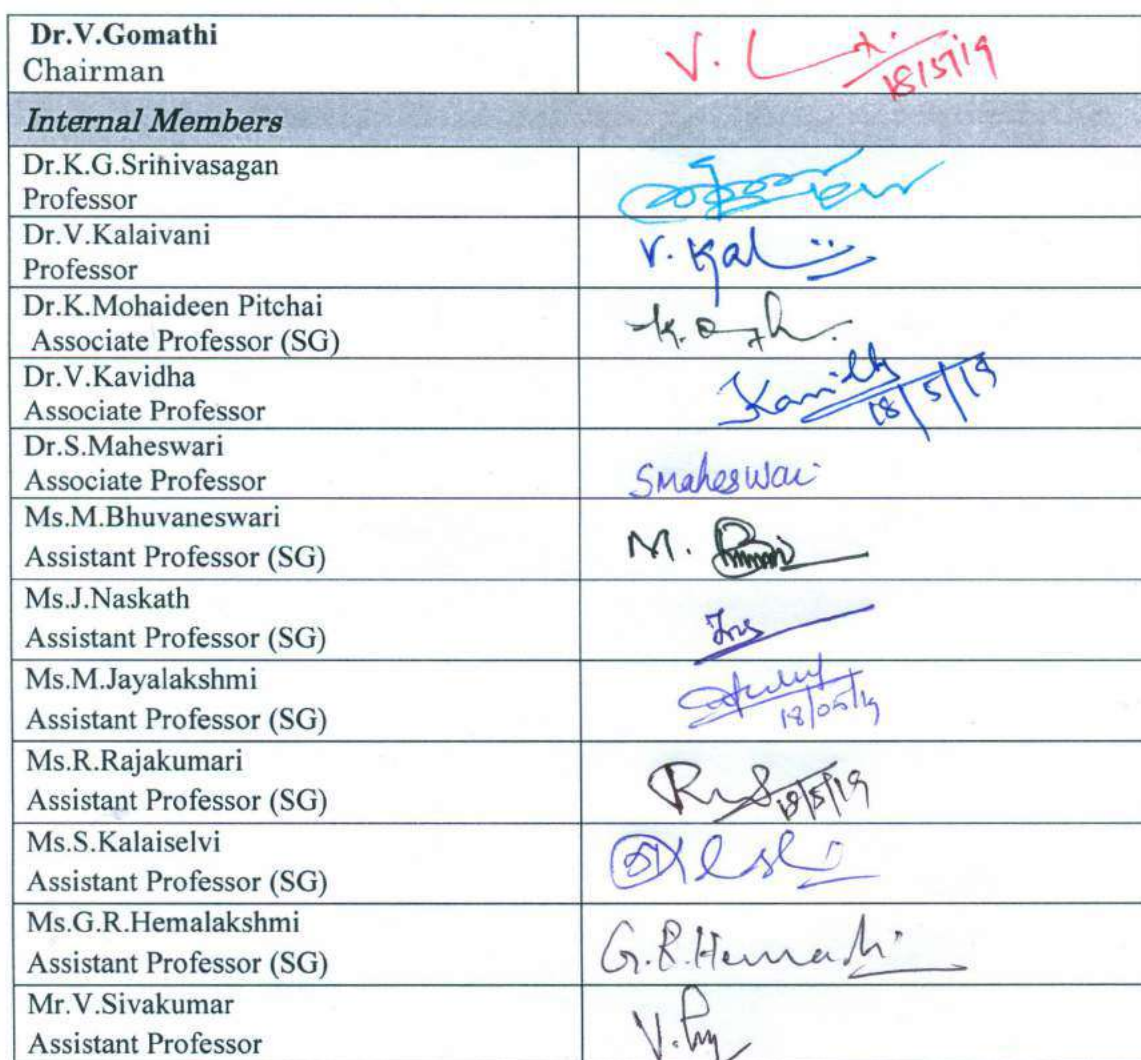 Dr.V.Gomathi
Chairman
V.
18/5/19
Internal Members
Dr.K.G.Srinivasagan
Professor
Dr.V.Kalaivani
Professor
V. Kal
Dr.K.Mohaideen Pitchai
Associate Professor (SG)
Dr.V.Kavidha
Associate Professor
18/5/19
Dr.S.Maheswari
Associate Professor
SMaheswari
Ms.M.Bhuvaneswari
Assistant Professor (SG)
M.
Ms.J.Naskath
Assistant Professor (SG)
Ms.M.Jayalakshmi
Assistant Professor (SG)
18/05/19
Ms.R.Rajakumari
Assistant Professor (SG)
18/5/19
Ms.S.Kalaiselvi
Assistant Professor (SG)
Ms.G.R.Hemalakshmi
Assistant Professor (SG)
G.R.Hema
Mr.V.Sivakumar
Assistant Professor
V.